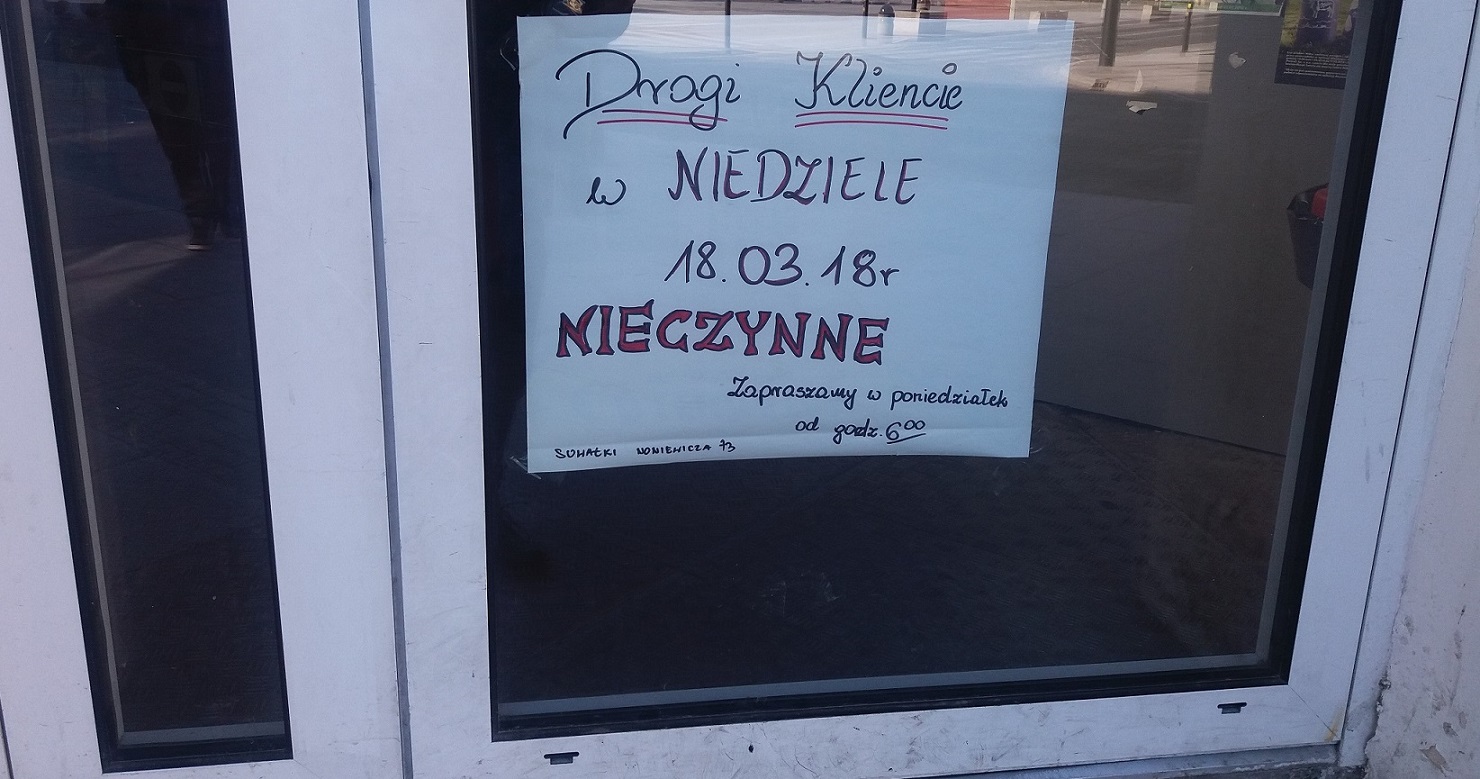 Drogi Kliencie
w NIEDZIELE
18.03.18r
NIECZYNNE
Zapraszamy w poniedziałek
od godz. 6⁰⁰
SUWAŁKI NONIEWICZA 73